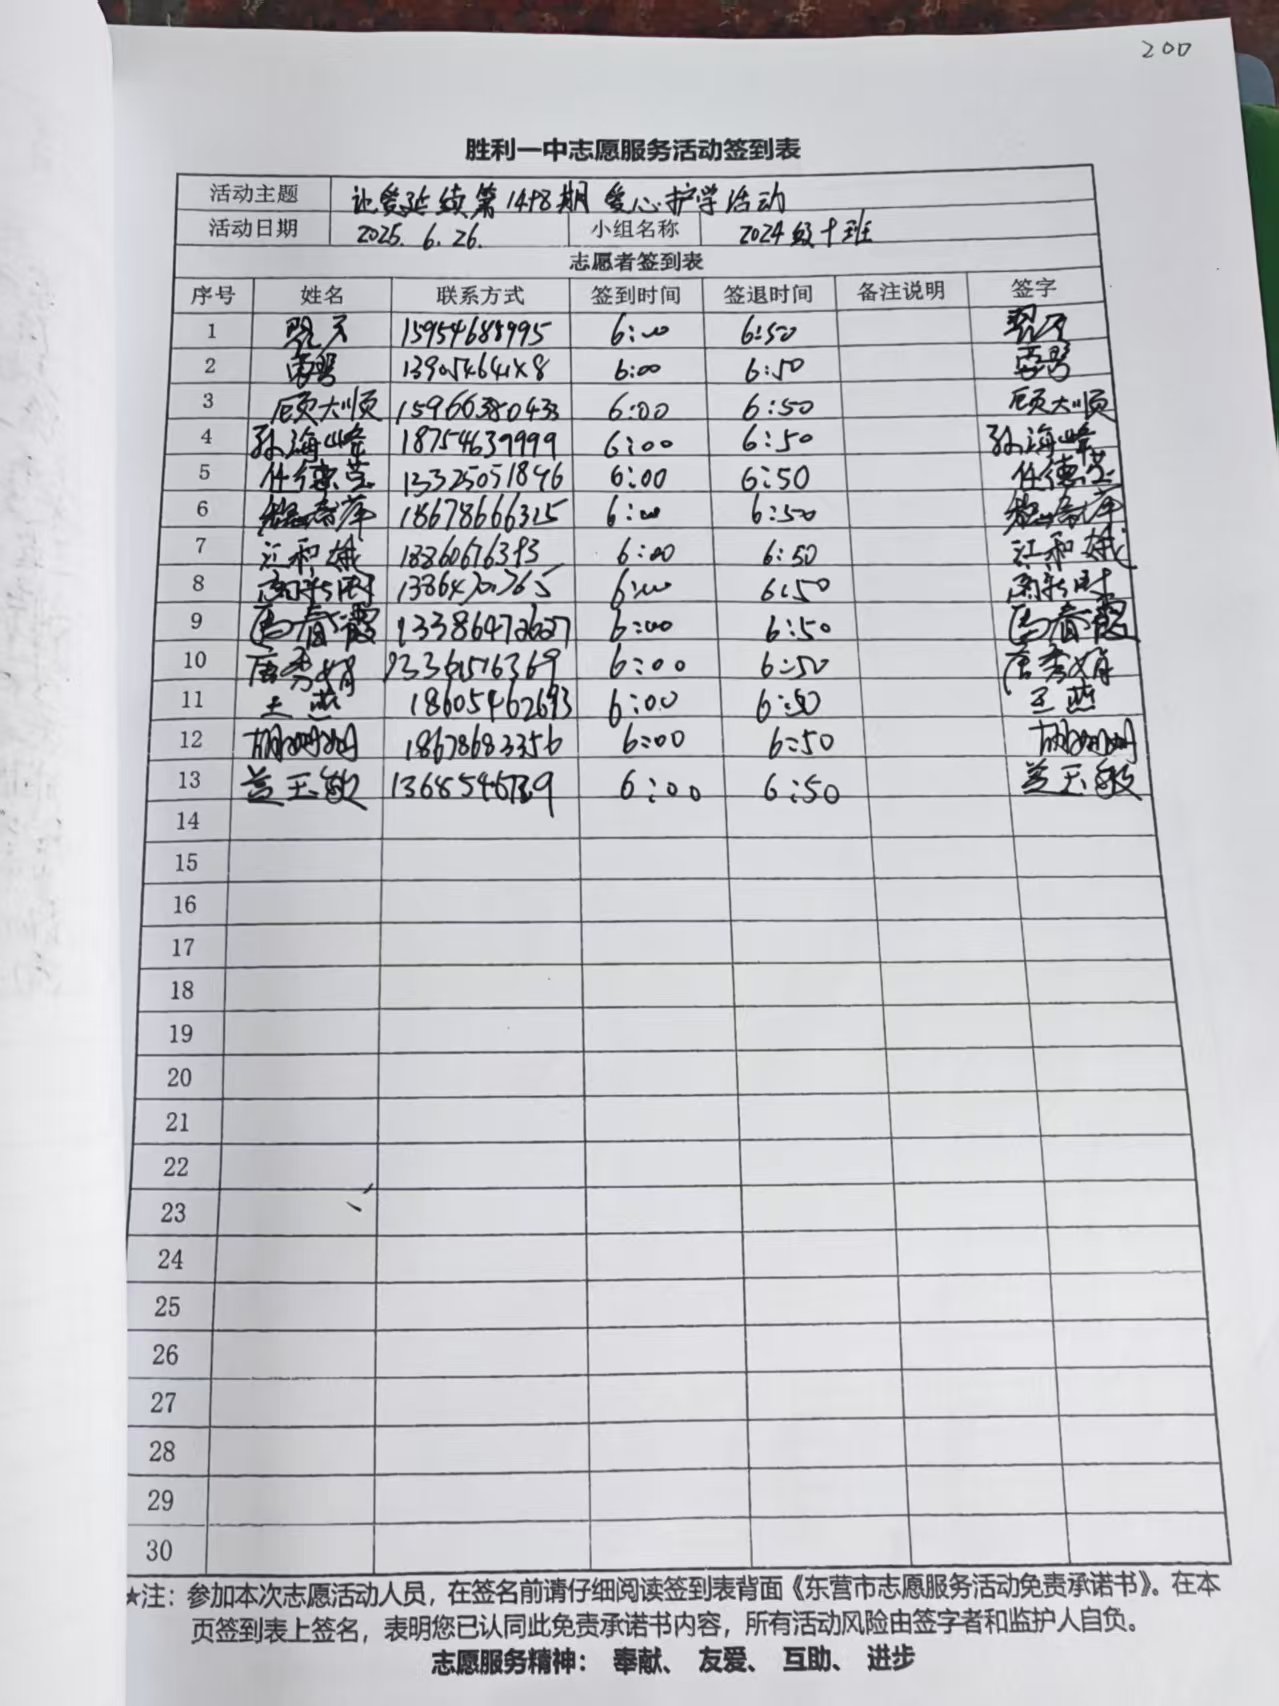 200
胜利一中志愿服务活动签到表
活动主题 让爱延续第1498期 爱心护学活动
活动日期 2025. 6. 26. 小组名称 2024级十班
志愿者签到表
序号 姓名 联系方式 签到时间 签退时间 备注说明 签字
1 15954688995 6:00 6:50
2 6:00 6:50
3 顾大顺 15966380433 6:00 6:50 顾大顺
4 孙海峰 18754639999 6:00 6:50 孙海峰
5 任德芸 13325051896 6:00 6:50 任德芸
6 18678666325 6:00 6:50
7 江和娥 18860676393 6:00 6:50 江和娥
8 6:00 6:50
9 马春霞 13386472627 6:00 6:50 马春霞
10 唐秀娟 13361516369 6:00 6:50 唐秀娟
11 王燕 18605462693 6:00 6:50 王燕
12 胡姗姗 18678683356 6:00 6:50 胡姗姗
13 兰玉敏 6:00 6:50 兰玉敏
14
15
16
17
18
19
20
21
22
23
24
25
26
27
28
29
30
★注：参加本次志愿活动人员，在签名前请仔细阅读签到表背面《东营市志愿服务活动免责承诺书》。在本
页签到表上签名，表明您已认同此免责承诺书内容，所有活动风险由签字者和监护人自负。
志愿服务精神： 奉献、 友爱、 互助、 进步